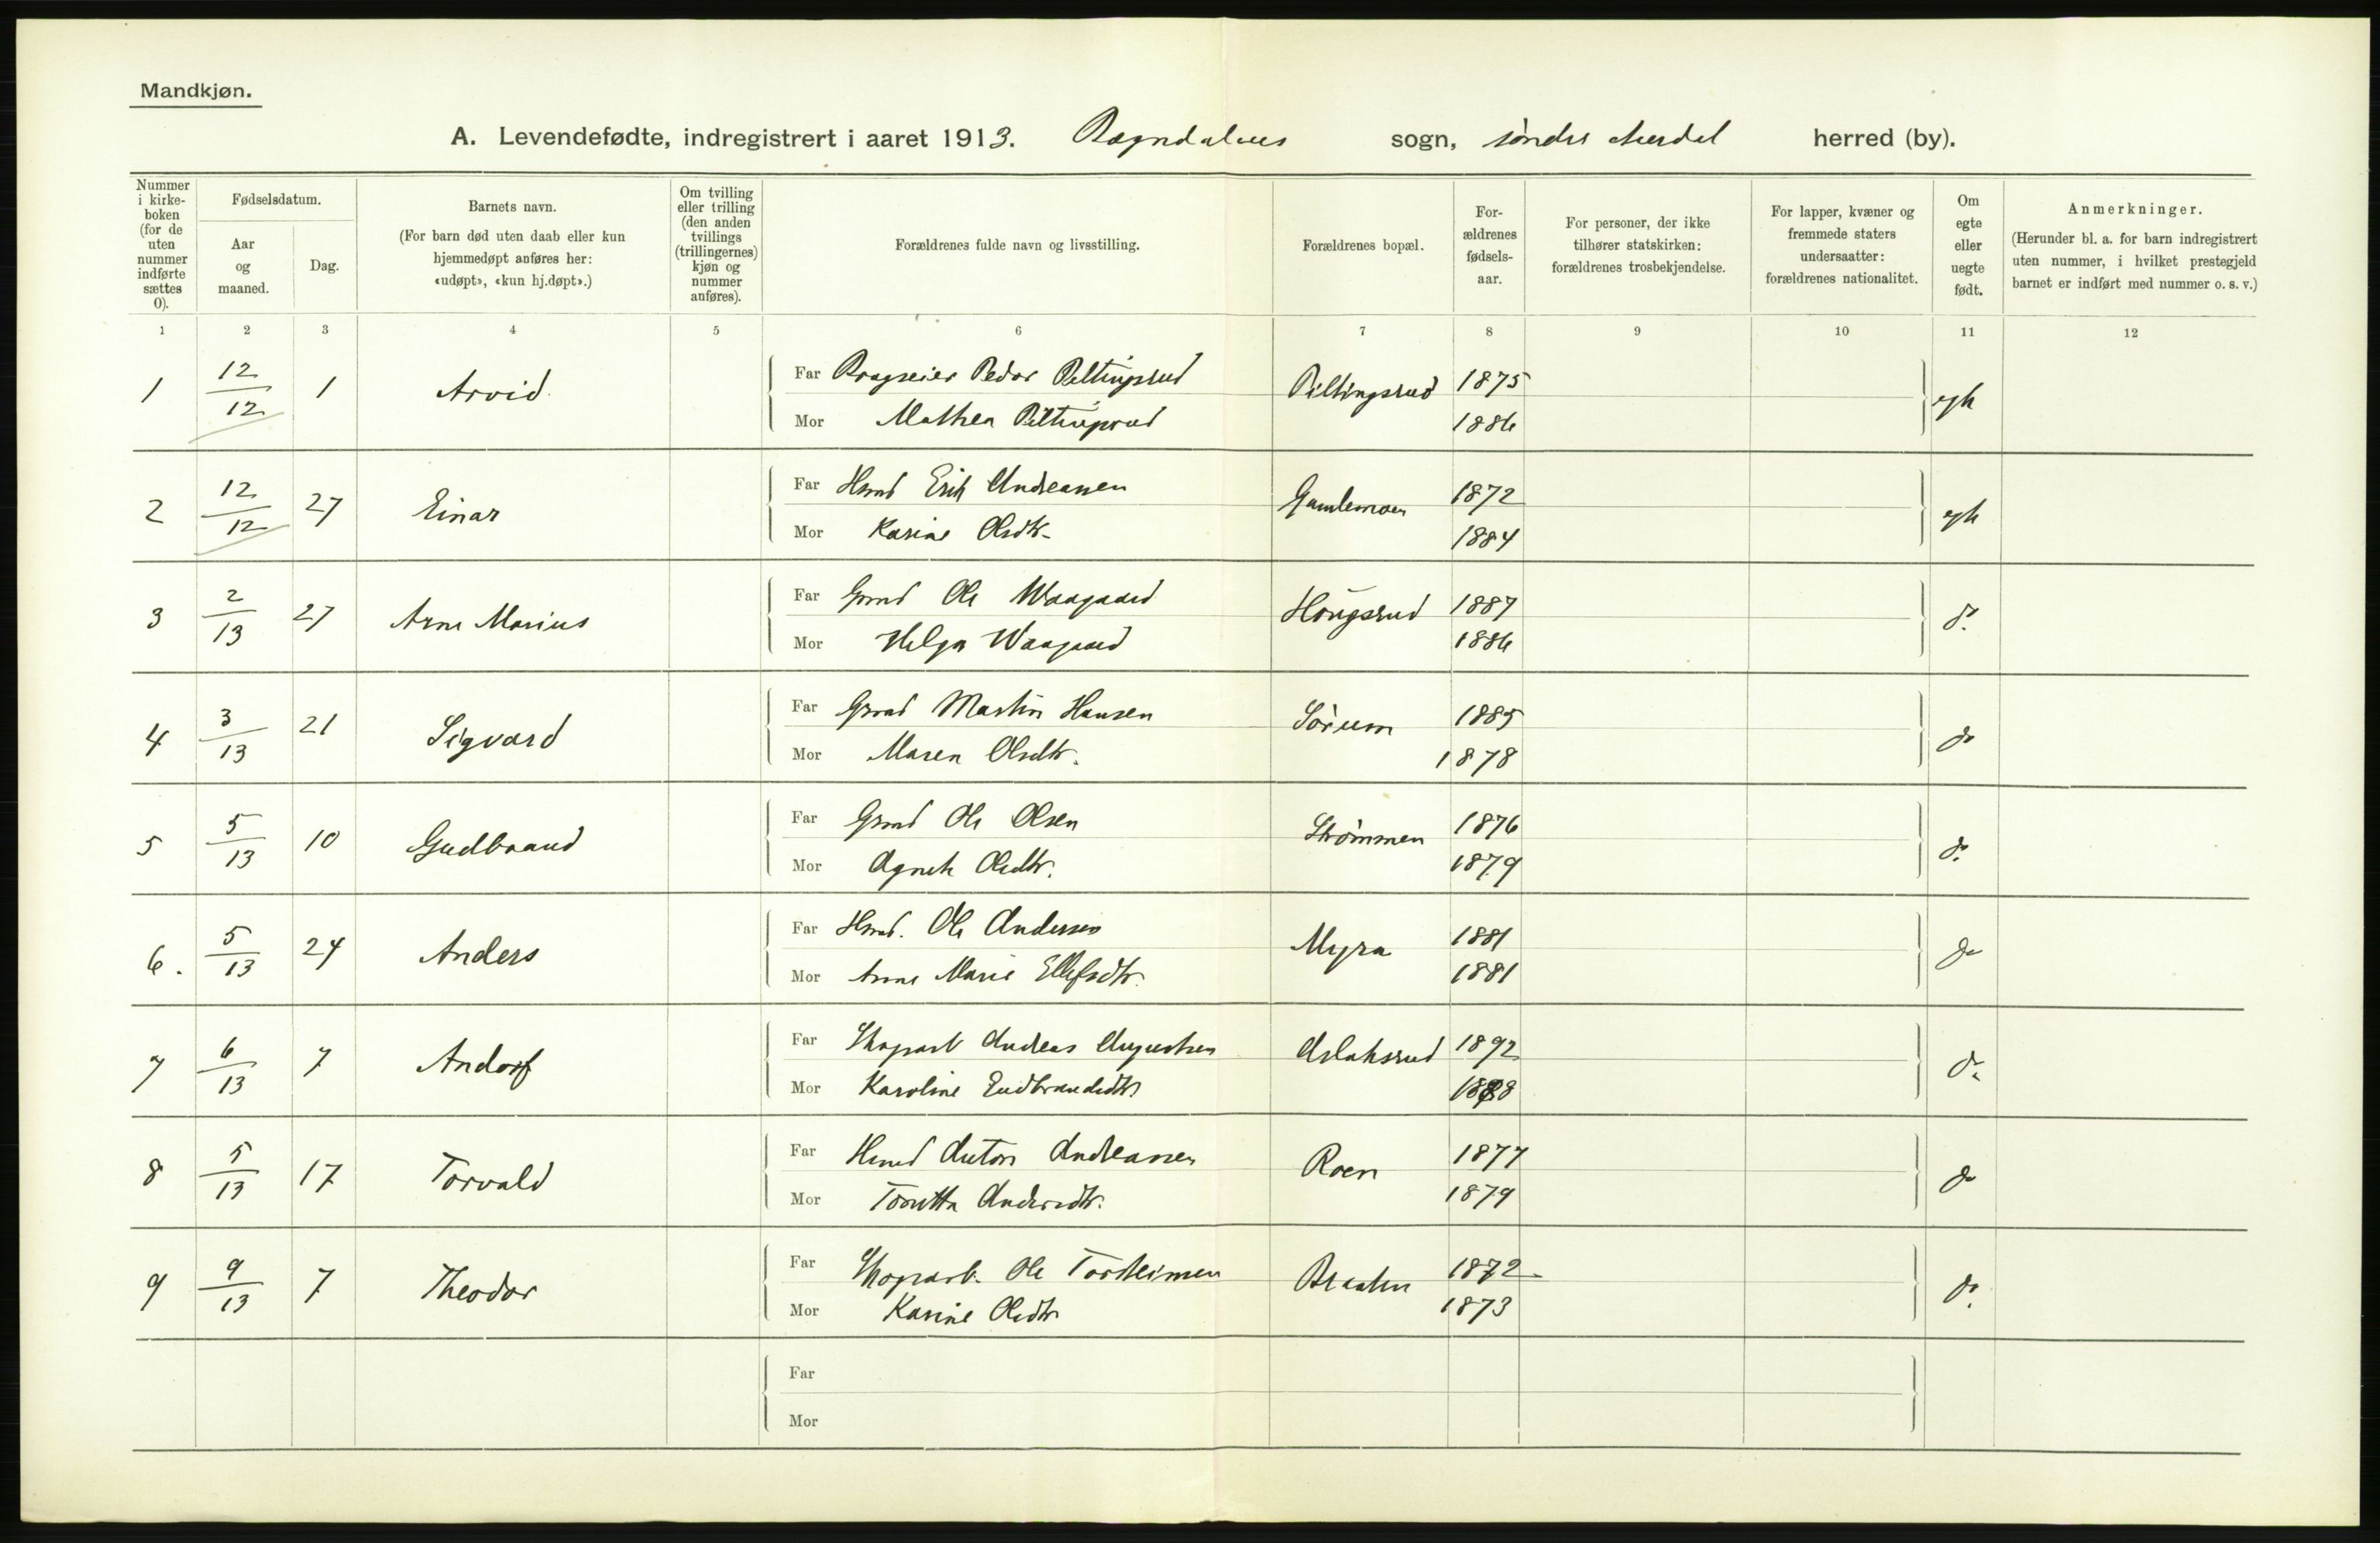 Mandkjøn.
A. Levendefødte, indregistrert i aaret 1913. sogn, søndre Aurdal herred (by).
Nummer i kirkeboken (for de uten nummer indførte sættes 0).
Fødselsdatum.
Aar og maaned.
Dag.
Barnets navn.
(For barn død uten daab eller kun hjemmedøpt anføres her: «udøpt», «kun hj.døpt».)
Om tvilling eller trilling (den anden tvillings (trillingernes) kjøn og nummer anføres).
Forældrenes fulde navn og livsstilling.
Forældrenes bopæl.
Forældrenes fødselsaar.
For personer, der ikke tilhører statskirken: forældrenes trosbekjendelse.
For lapper, kvæner og fremmede staters undersaatter: forældrenes nationalitet.
Om egte eller uegte født.
Anmerkninger.
(Herunder bl. a. for barn indregistrert uten nummer, i hvilket prestegjeld barnet er indført med nummer o. s. v.)
1 2 3 4 5 6 7 8 9 10 11 12
1 12/12 1 Arvid Far Peder Piltingsrud Piltingsrud 1875
Mor Mathea Piltingsrud 1886
2 12/12 27 Einar Far Erik Andreassen Gamlemoen 1872
Mor Karine Olsdtr. 1884
3 2/13 27 Arne Marius Far Grmd Ole Waagaard Hougsrud 1887 do.
Mor Helga Waagaard 1886
4 3/13 21 Sigvard Far Grmd Martin Hansen Sørum 1885 do
Mor Maren Olsdtr. 1878
5 5/13 10 Gudbrand Far Grmd Ole Olsen Strømmen 1876 do.
Mor Agnete Olsdtr. 1879
6. 5/13 24 Anders Far Ole Andersen Myra 1881 do
Mor Anne Marie Ellefsdtr. 1881
7 6/13 7 Andorf Far Skogarb Andreas Augustsen Aslaksrud 1892 do.
Mor Karoline Gudbrandsdtr 1888
8 5/13 17 Torvald Far Anton Andreassen Roen 1877 do
Mor Andersdtr. 1879
9 9/13 7 Theodor Far Skogarb. Ole Torsteinsen Braaten 1872 do.
Mor Karine Olsdtr 1873
Far
Mor